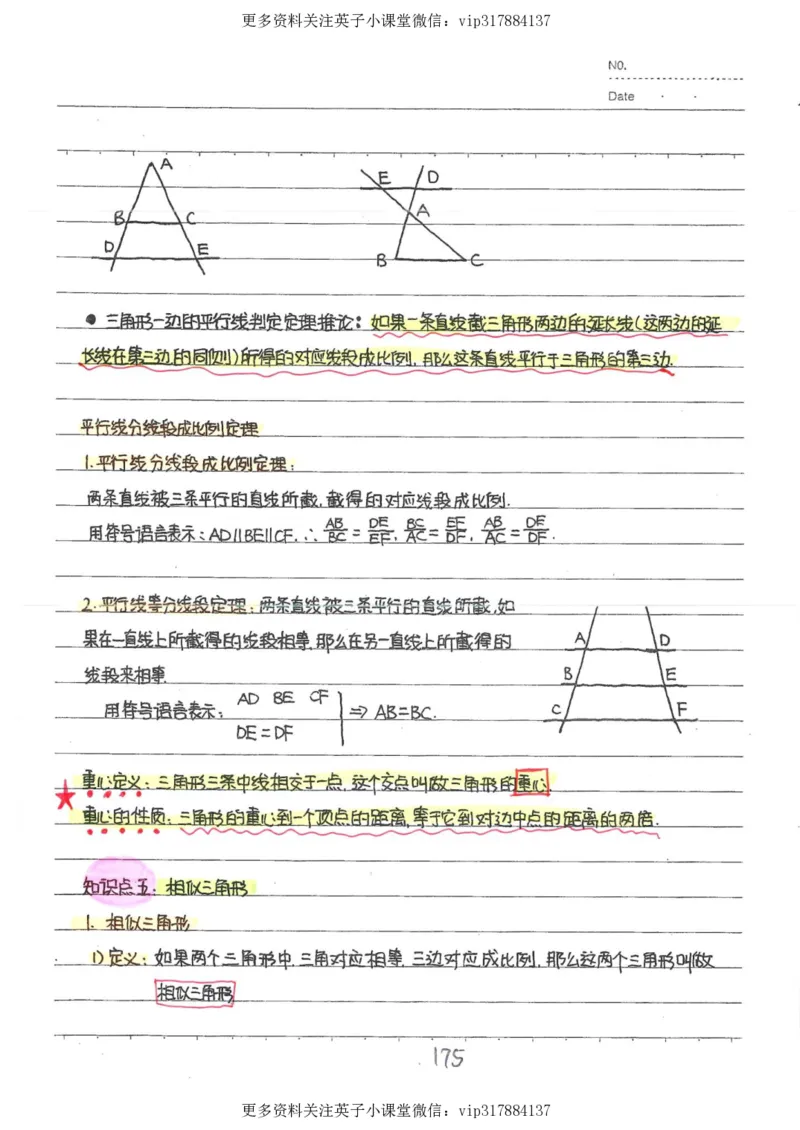 更多资料关注英子小课堂微信：vip317884137
NO.
Date
A
B C
D E
E D
A
B C
● 三角形一边的平行线判定定理推论：如果一条直线截三角形两边的延长线（这两边的延
长线在第三边的同侧）所得的对应线段成比例，那么这条直线平行于三角形的第三边.
平行线分线段成比例定理
1.平行线分线段成比例定理：
两条直线被三条平行的直线所截，截得的对应线段成比例.
用符号语言表示：AD∥BE∥CF，∴ AB/BC = DE/EF，BC/AC = EF/DF，AB/AC = DE/DF.
2.平行线等分线段定理：两条直线被三条平行的直线所截，如
果在一直线上所截得的线段相等，那么在另一直线上所截得的
线段来相等
用符号语言表示： AD BE CF
DE=DF ⇒ AB=BC.
A D
B E
C F
重心定义：三角形三条中线相交于一点，这个交点叫做三角形的重心.
★
重心的性质：三角形的重心到一个顶点的距离，等于它到对边中点的距离的两倍.
知识点五：相似三角形
1. 相似三角形
1)定义：如果两个三角形中，三角对应相等，三边对应成比例，那么这两个三角形叫做
相似三角形
175
更多资料关注英子小课堂微信：vip317884137